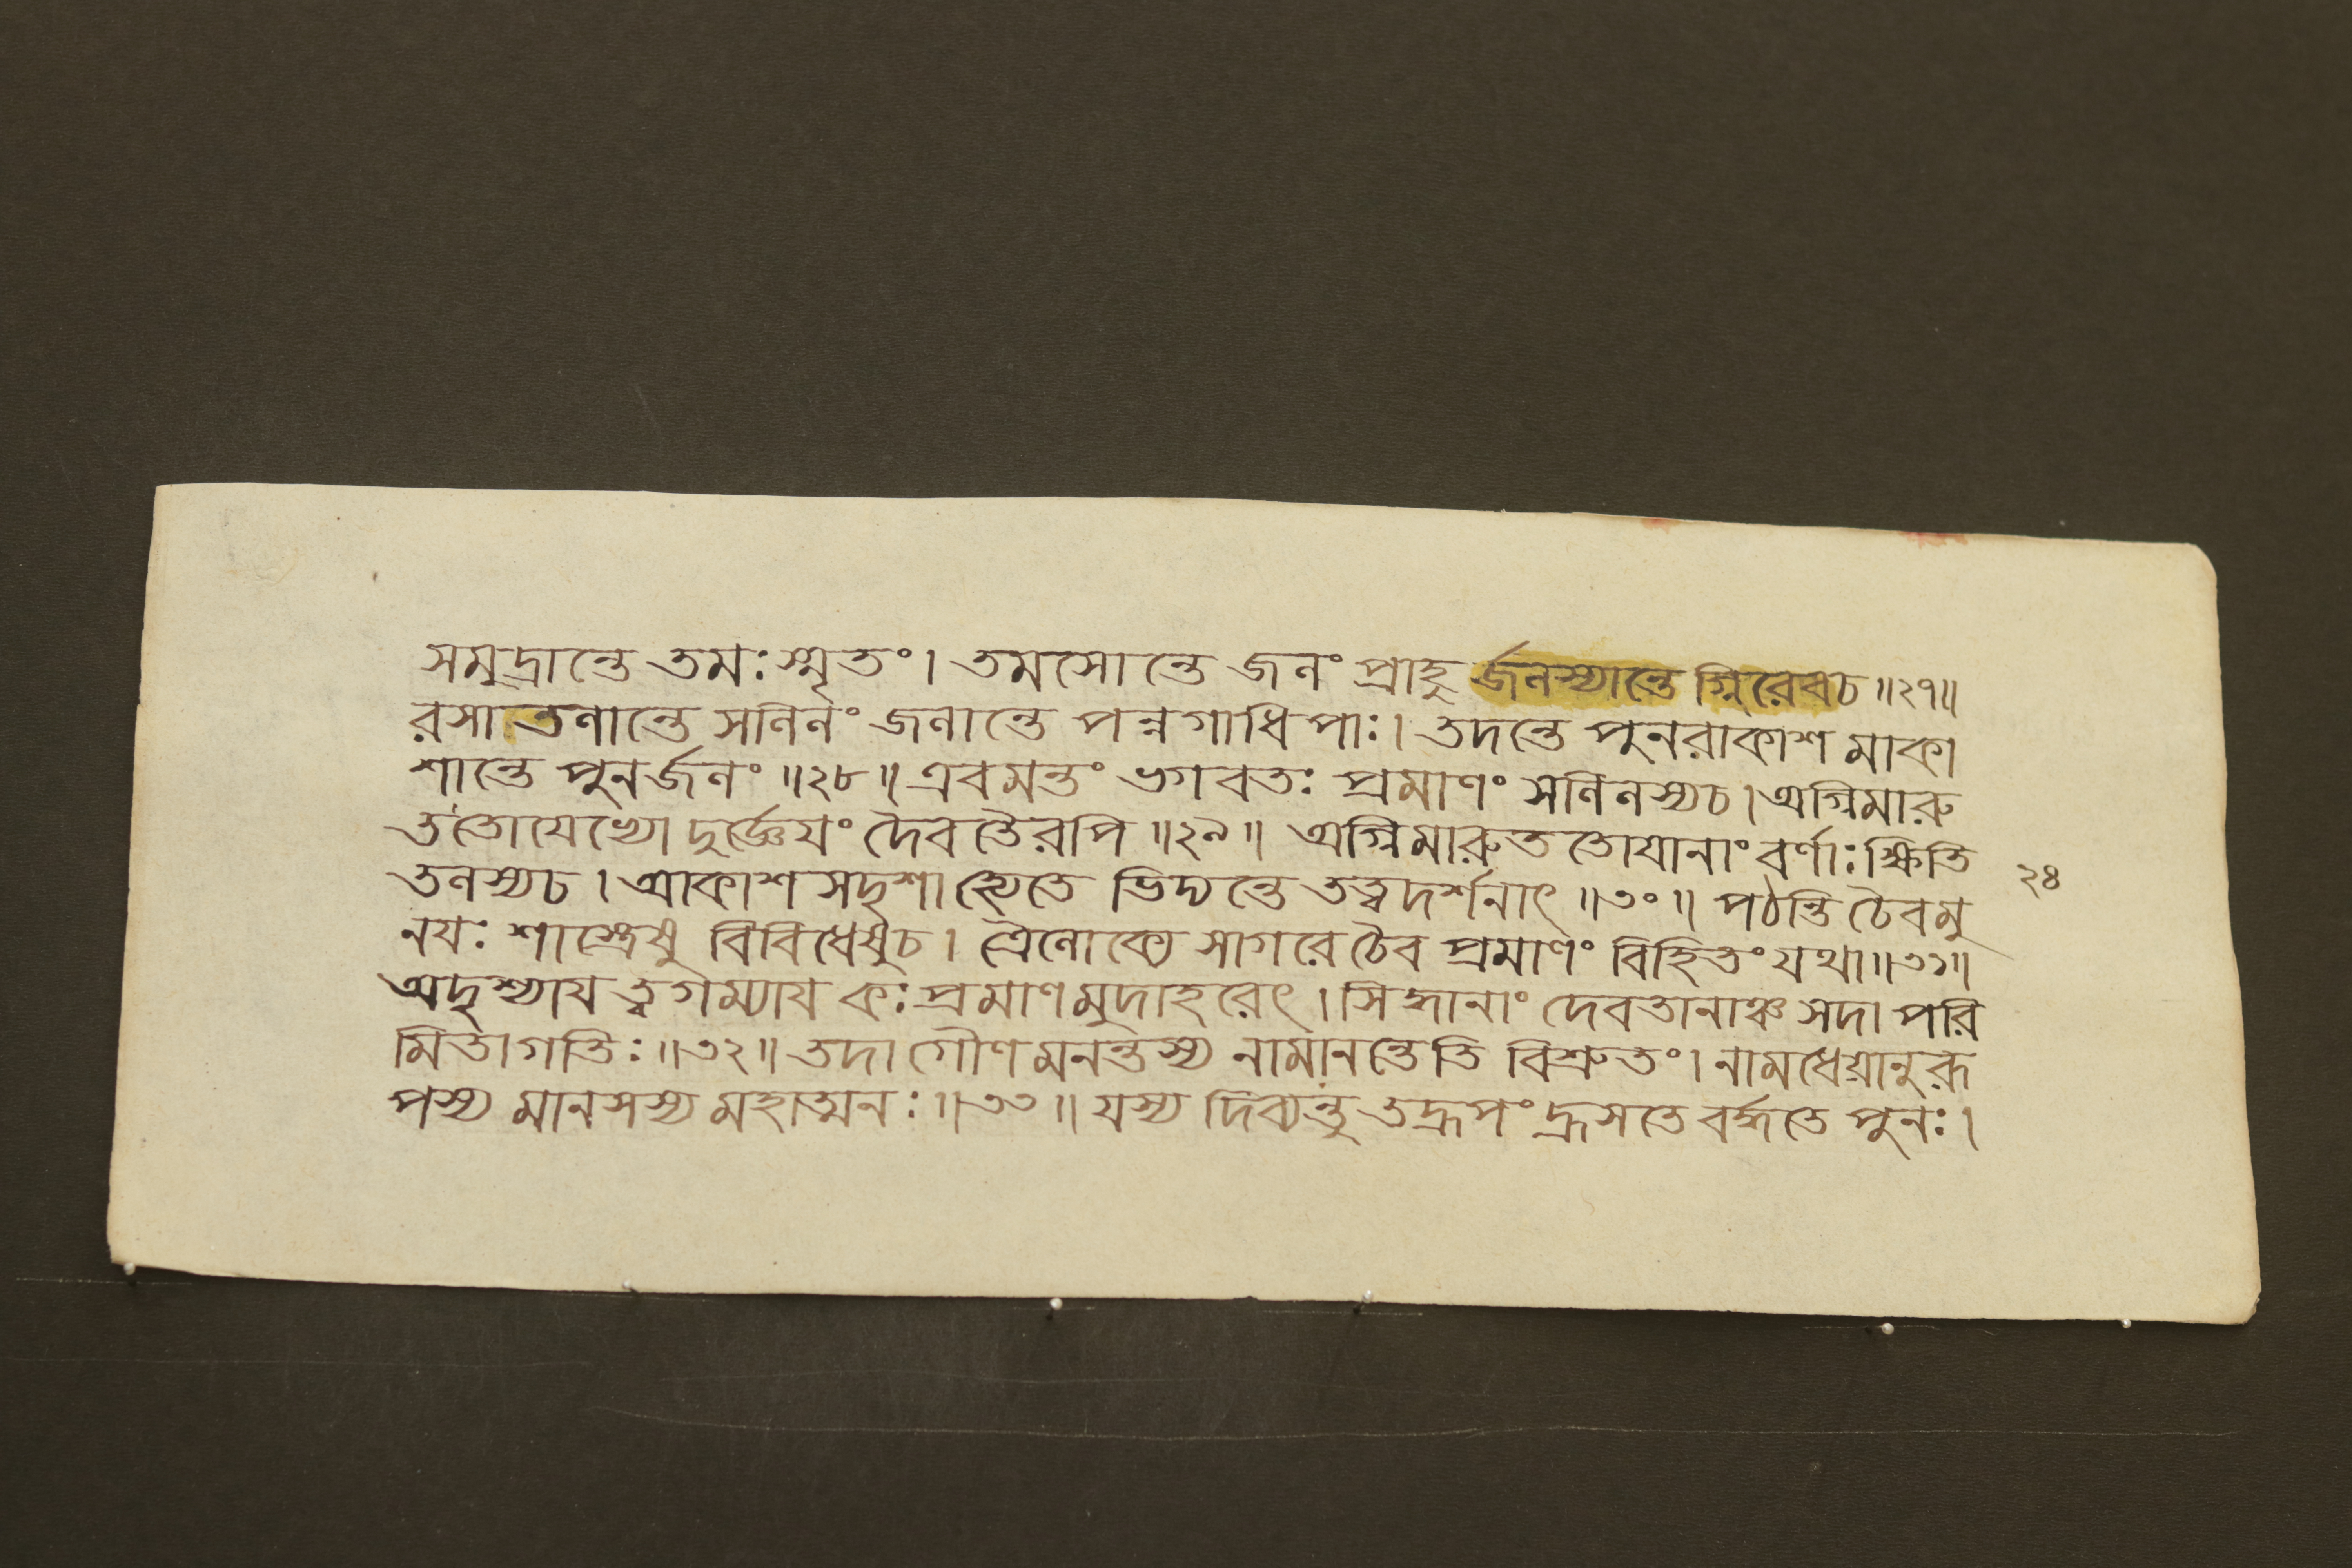 সমুদ্রান্তে তমঃ স্মৃতং। তমসোন্তে জলং প্রাহু র্জলস্যান্তে গ্নিরেবচ॥২৭॥
রসাতলান্তে সলিলং জলান্তে পন্নগাধিপাঃ। তদন্তে পুনরাকাশ মাকা
শান্তে পুনর্জলং॥২৮॥ এবমন্তং ভগবতঃ প্রমাণং সলিলস্যচ। অগ্নিমারু
ততোযেভ্যো দুর্জ্ঞেযং দৈবতৈরপি॥২৯॥ অগ্নিমারুত তোযানাং বর্ণাঃ ক্ষিতি
তলস্যচ। আকাশ সদৃশা হ্যেতে ভিদ্যন্তে তত্ত্বদর্শনাৎ॥৩০॥ পঠন্তি চৈবমু
২৪
নযঃ শাস্ত্রেষু বিবিধেষুচ। ত্রৈলোক্যে সাগরে চৈব প্রমাণং বিহিতং যথা॥৩১॥
অদৃশ্যায ত্বগম্যায কঃ প্রমাণমুদাহরেৎ। সিদ্ধানাং দেবতানাঞ্চ সদা পরি
মিতাগতিঃ॥৩২॥ তদা গৌণ মনন্তস্য নামানন্তেতি বিশ্রুতং। নামধেয়ানুরূ
পস্য মানসস্য মহাত্মনঃ॥৩৩॥ যস্য দিব্যন্তু তদ্রূপং হ্রসতে বর্দ্ধতে পুনঃ।